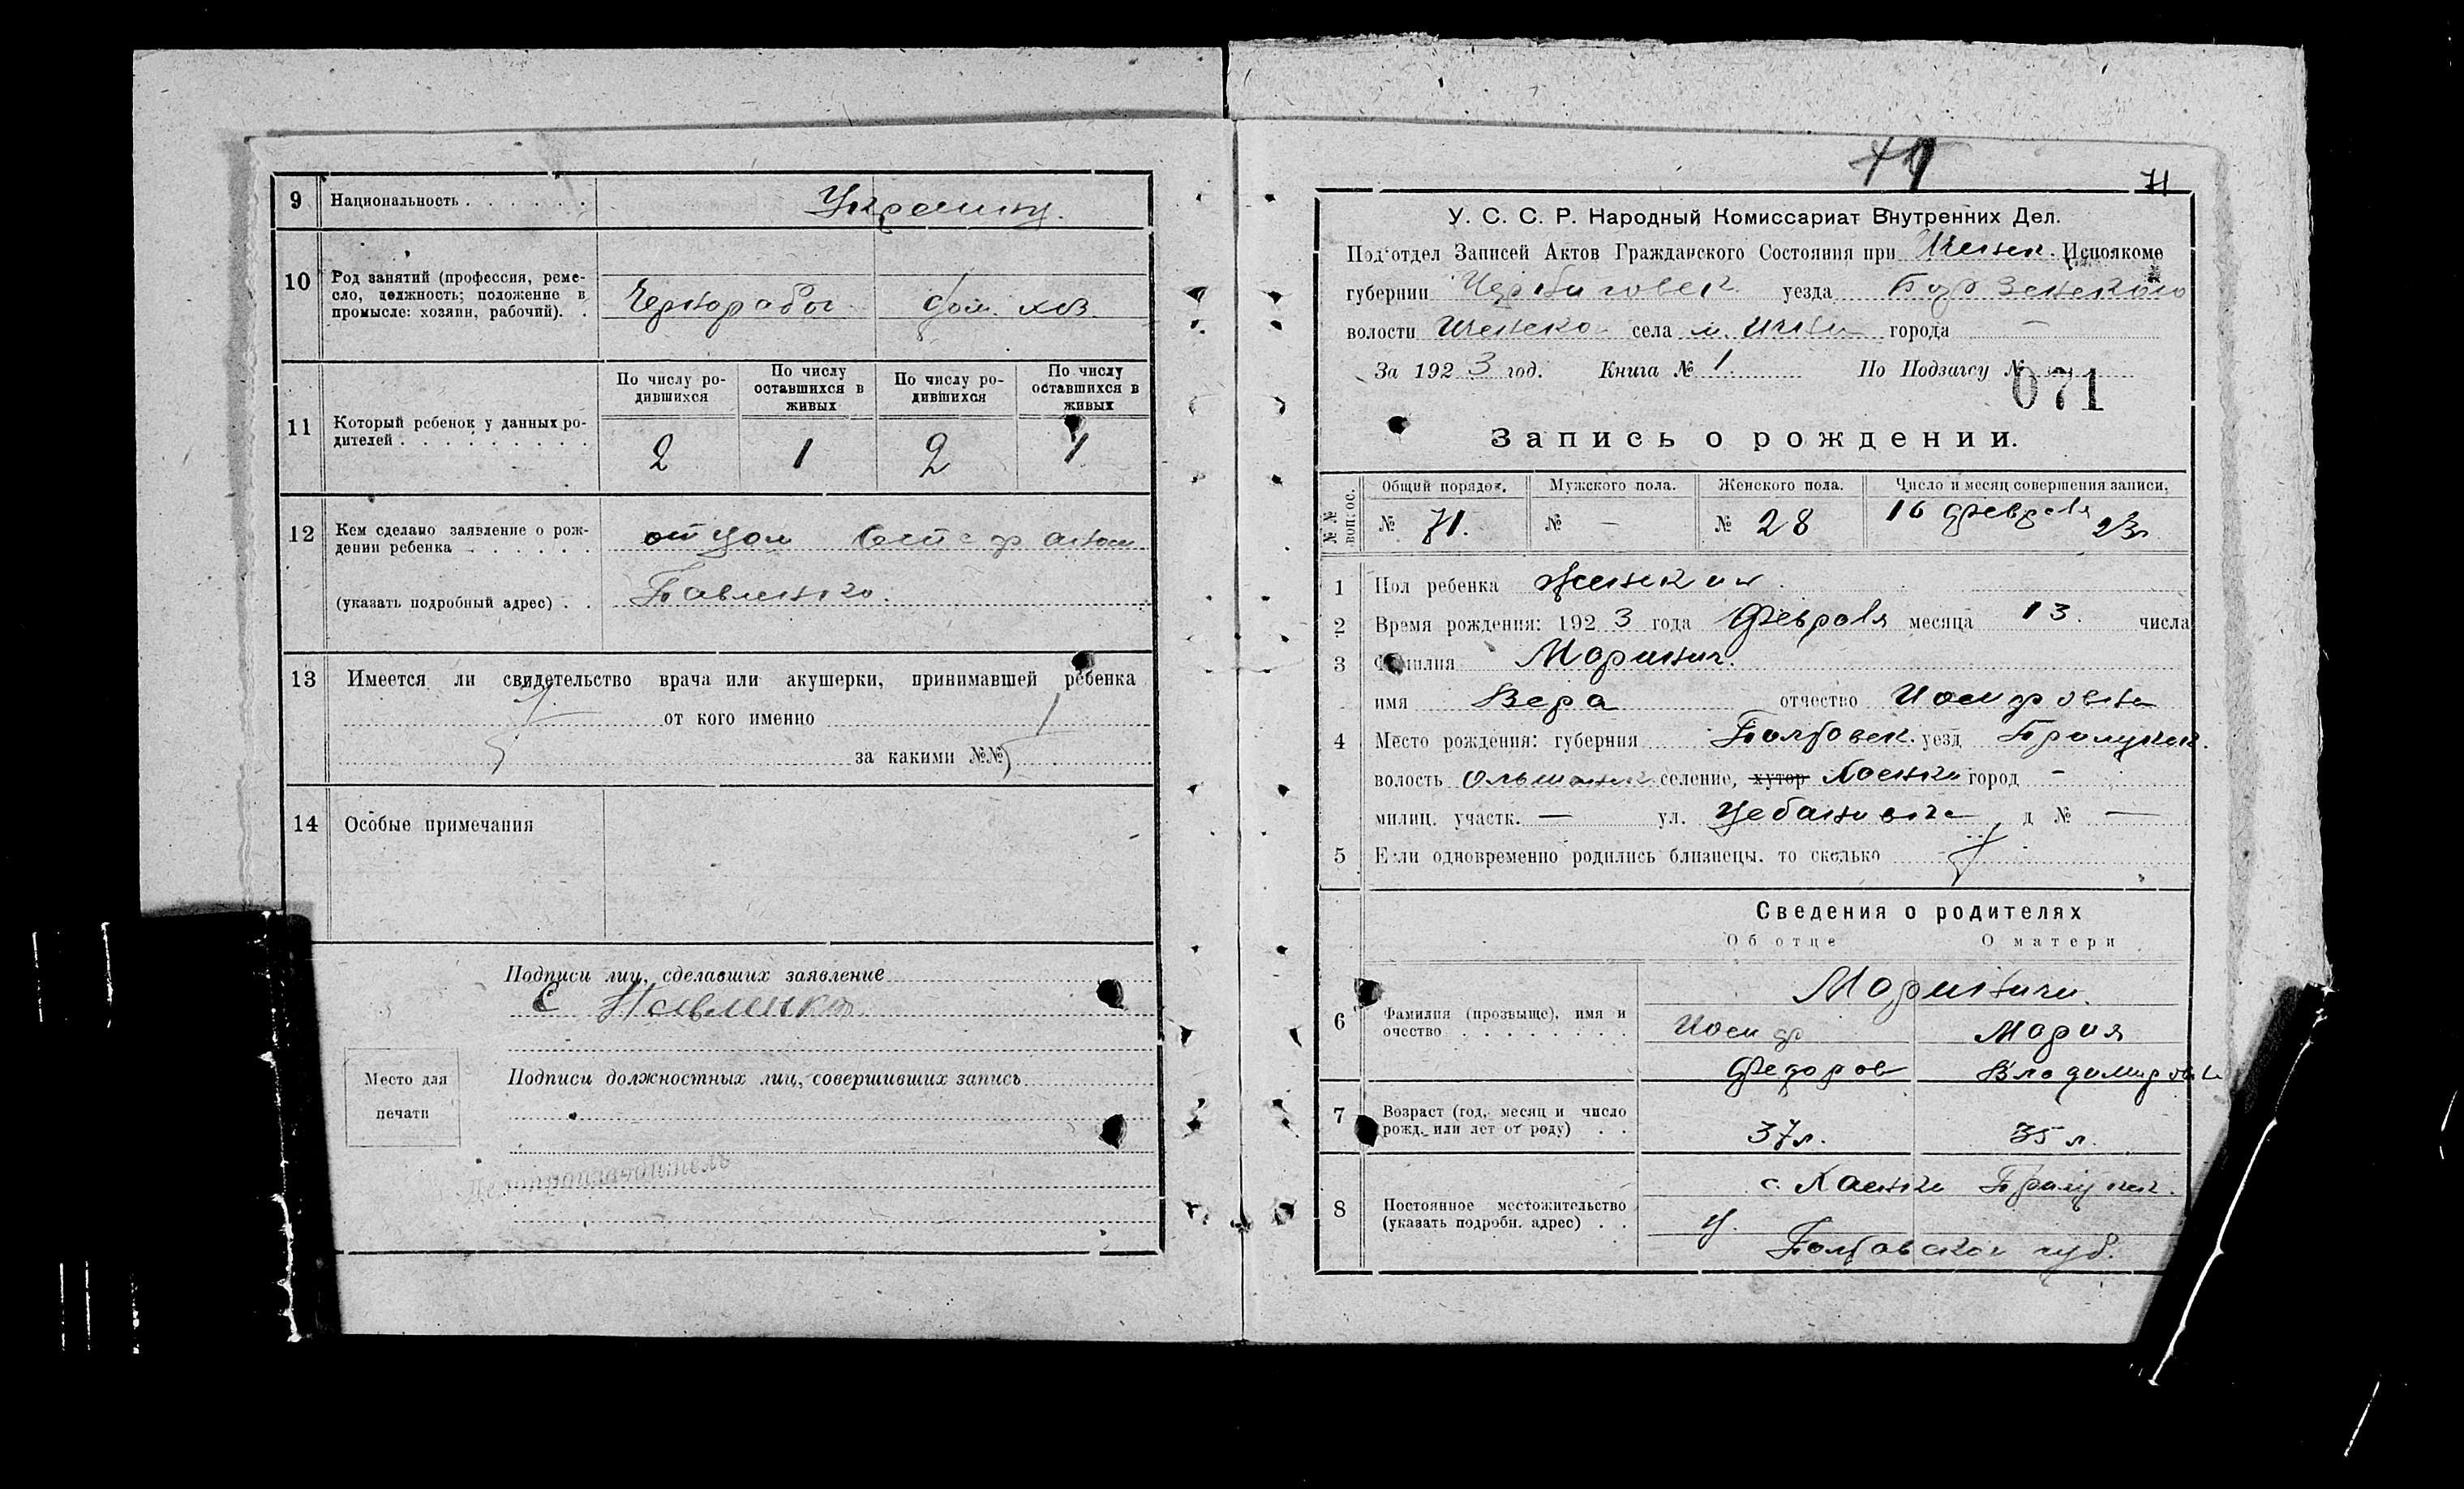 9 Национальность Украинц.
10 Род занятий (профессия, реме-
сло, должность; положение в
промысле: хозяин, рабочий).
Чернорабоч. дом. хоз.
По числу ро-
дившихся
По числу
оставшихся в
живых
По числу ро-
дившихся
По числу
оставшихся в
живых
11 Который ребенок у данных ро-
дителей
2 1 2 1
12 Кем сделано заявление о рож-
дении ребенка
отцом
(указать подробный адрес)
Павленко.
13 Имеется ли свидетельство врача или акушерки, принимавшей ребенка
от кого именно
за какими №№
14 Особые примечания
Подписи лиц, сделавших заявление
С Павленко
Подписи должностных лиц, совершивших запись
Место для
печати
Делопроизводитель
71
У. С. С. Р. Народный Комиссариат Внутренних Дел.
Подотдел Записей Актов Гражданского Состояния при Иченск. Исполкоме
губернии Черниговск. уезда Борзенского
волости Иченской села м. Ичня города —
За 1923 год. Книга № 1. По Подзагсу №
071
Запись о рождении.
№№ вопрос.
Общий порядок. Мужского пола. Женского пола. Число и месяц совершения записи.
№ 71. № — № 28 16 февраля
23
1 Пол ребенка женский
2 Время рождения: 1923 года Февраля месяца 13. числа
3 Фамилия Маринич.
имя Вера отчество Иосифовна
4 Место рождения: губерния Полтавск. уезд Прилукск.
волость Ольшанск. селение, хутор Хаенки город —
милиц. участк. — ул. д № —
5 Если одновременно родились близнецы, то сколько
Сведения о родителях
Об отце О матери
Мариничи.
6 Фамилия (прозвыще), имя и
очество
Иосиф Мария
Федоров Владимировна
7 Возраст (год, месяц и число
рожд. или лет от роду)
37 л. 35 л.
8 Постоянное местожительство
(указать подробн. адрес)
с. Хаенки Прилукск.
у.
Полтавской губ.